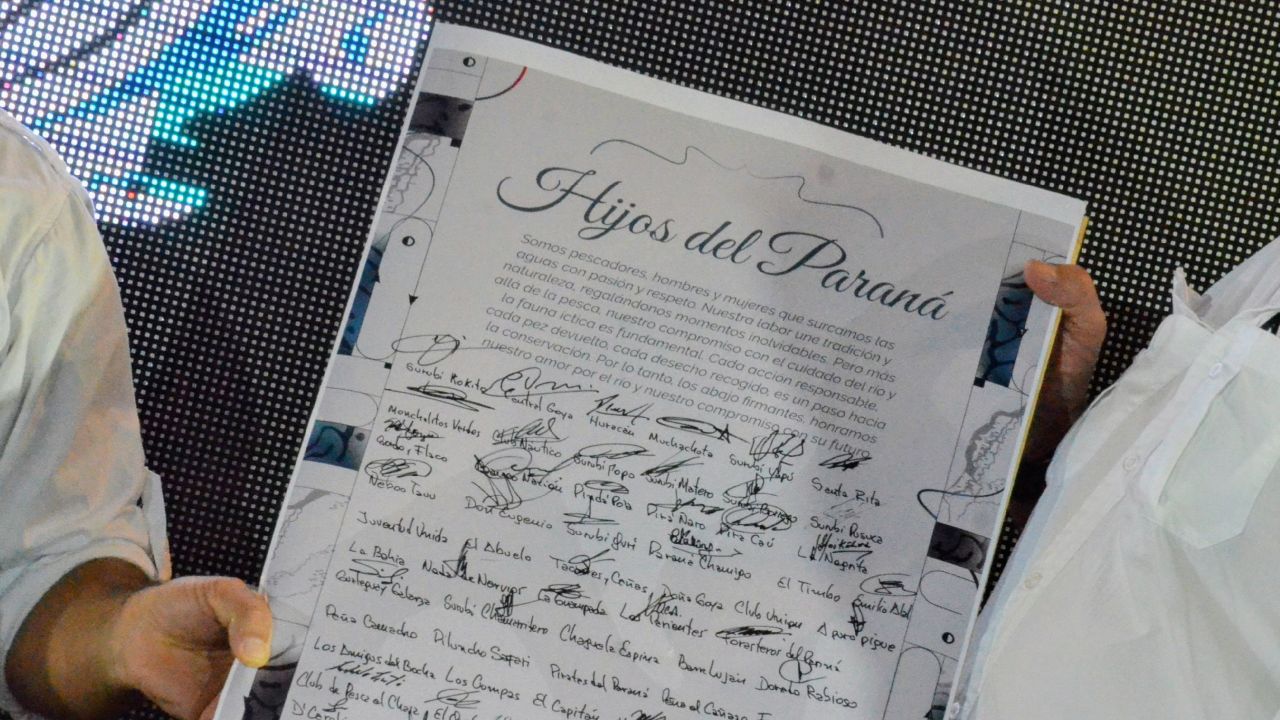 Hijos del Paraná
Somos pescadores, hombres y mujeres que surcamos las
aguas con pasión y respeto. Nuestra labor une tradición y
naturaleza, regalándonos momentos inolvidables. Pero más
allá de la pesca, nuestro compromiso con el cuidado del río y
la fauna íctica es fundamental. Cada acción responsable,
cada pez devuelto, cada desecho recogido, es un paso hacia
la conservación. Por lo tanto, los abajo firmantes, honramos
nuestro amor por el río y nuestro compromiso con su futuro.
Surubí Rokita Central Goya Huracán Muchachota Surubí Yapú Santa Rita
Monchalitos Verdes Club Náutico Surubí Popo Surubí Matero Surubí Surubí Pusuca
Gordo y Flaco Pirá Pota Pirá Ñaro Pirá Caú La Negrita
Don Eugenio Surubí Paraná Chamigo El Timbo Emilio
Juventud Unida El Abuelo y Cañas Doña Goya Club Unión A puro pique
La Bahia La Guampada Los Forasteros del Paraná
Surubí Chamamecero Barrelujan Dorado Rabioso
Peña Camacho Safari Piratas del Paraná Peña el
Los Amigos del Bocha Los Compas El Capitán
Club de Pesca el Chapa